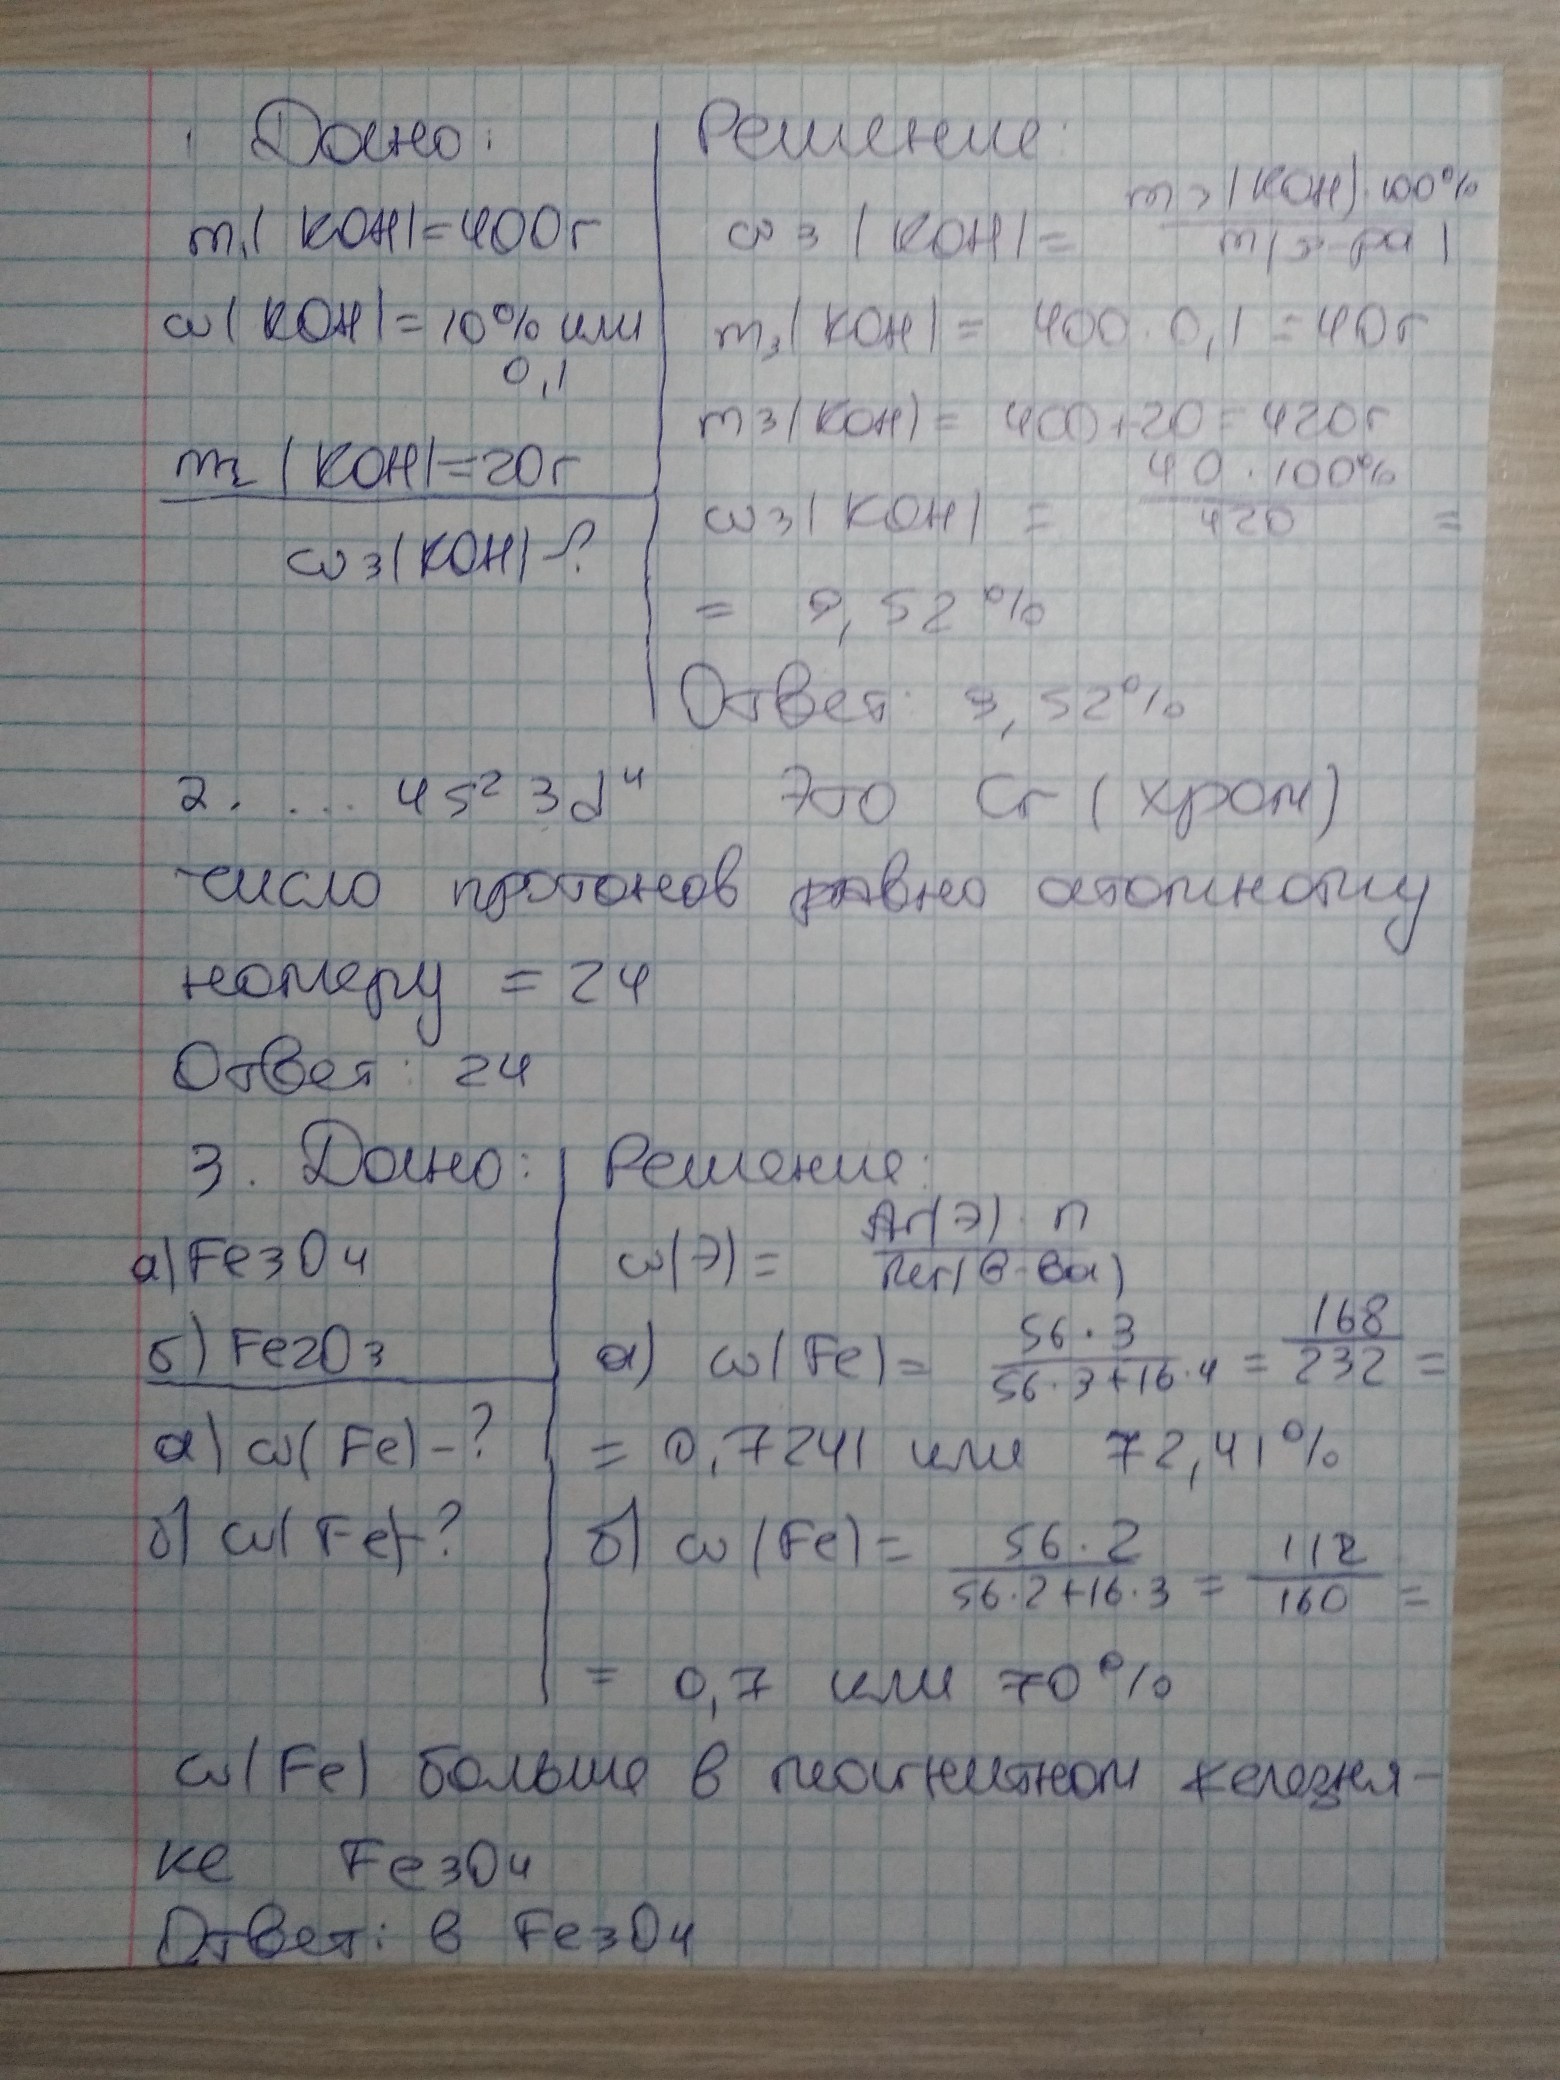 1 Дано:
m₁(KOH)=400г
ω(KOH)=10% или
0,1
m₂(KOH)=20г
ω₃(KOH)-?
Решение:
ω₃(KOH)= m₃(KOH)·100% / m(р-ра)
m₃(KOH)= 400·0,1=40г
m₃(KOH)= 400+20=420г
ω₃(KOH) = 40·100% / 420 =
= 9,52%
Ответ: 9,52%
2. ... 4s² 3d⁴ Это Cr (хром)
число протонов равно атомному
номеру = 24
Ответ: 24
3. Дано:
а) Fe₃O₄
б) Fe₂O₃
а) ω(Fe)-?
б) ω(Fe)-?
Решение:
ω(Э)= Ar(Э)·n / Mr(в-ва)
а) ω(Fe)= 56·3 / 56·3+16·4 = 168 / 232 =
= 0,7241 или 72,41%
б) ω(Fe)= 56·2 / 56·2+16·3 = 112 / 160 =
= 0,7 или 70%
ω(Fe) больше в магнитном железня-
ке Fe₃O₄
Ответ: в Fe₃O₄